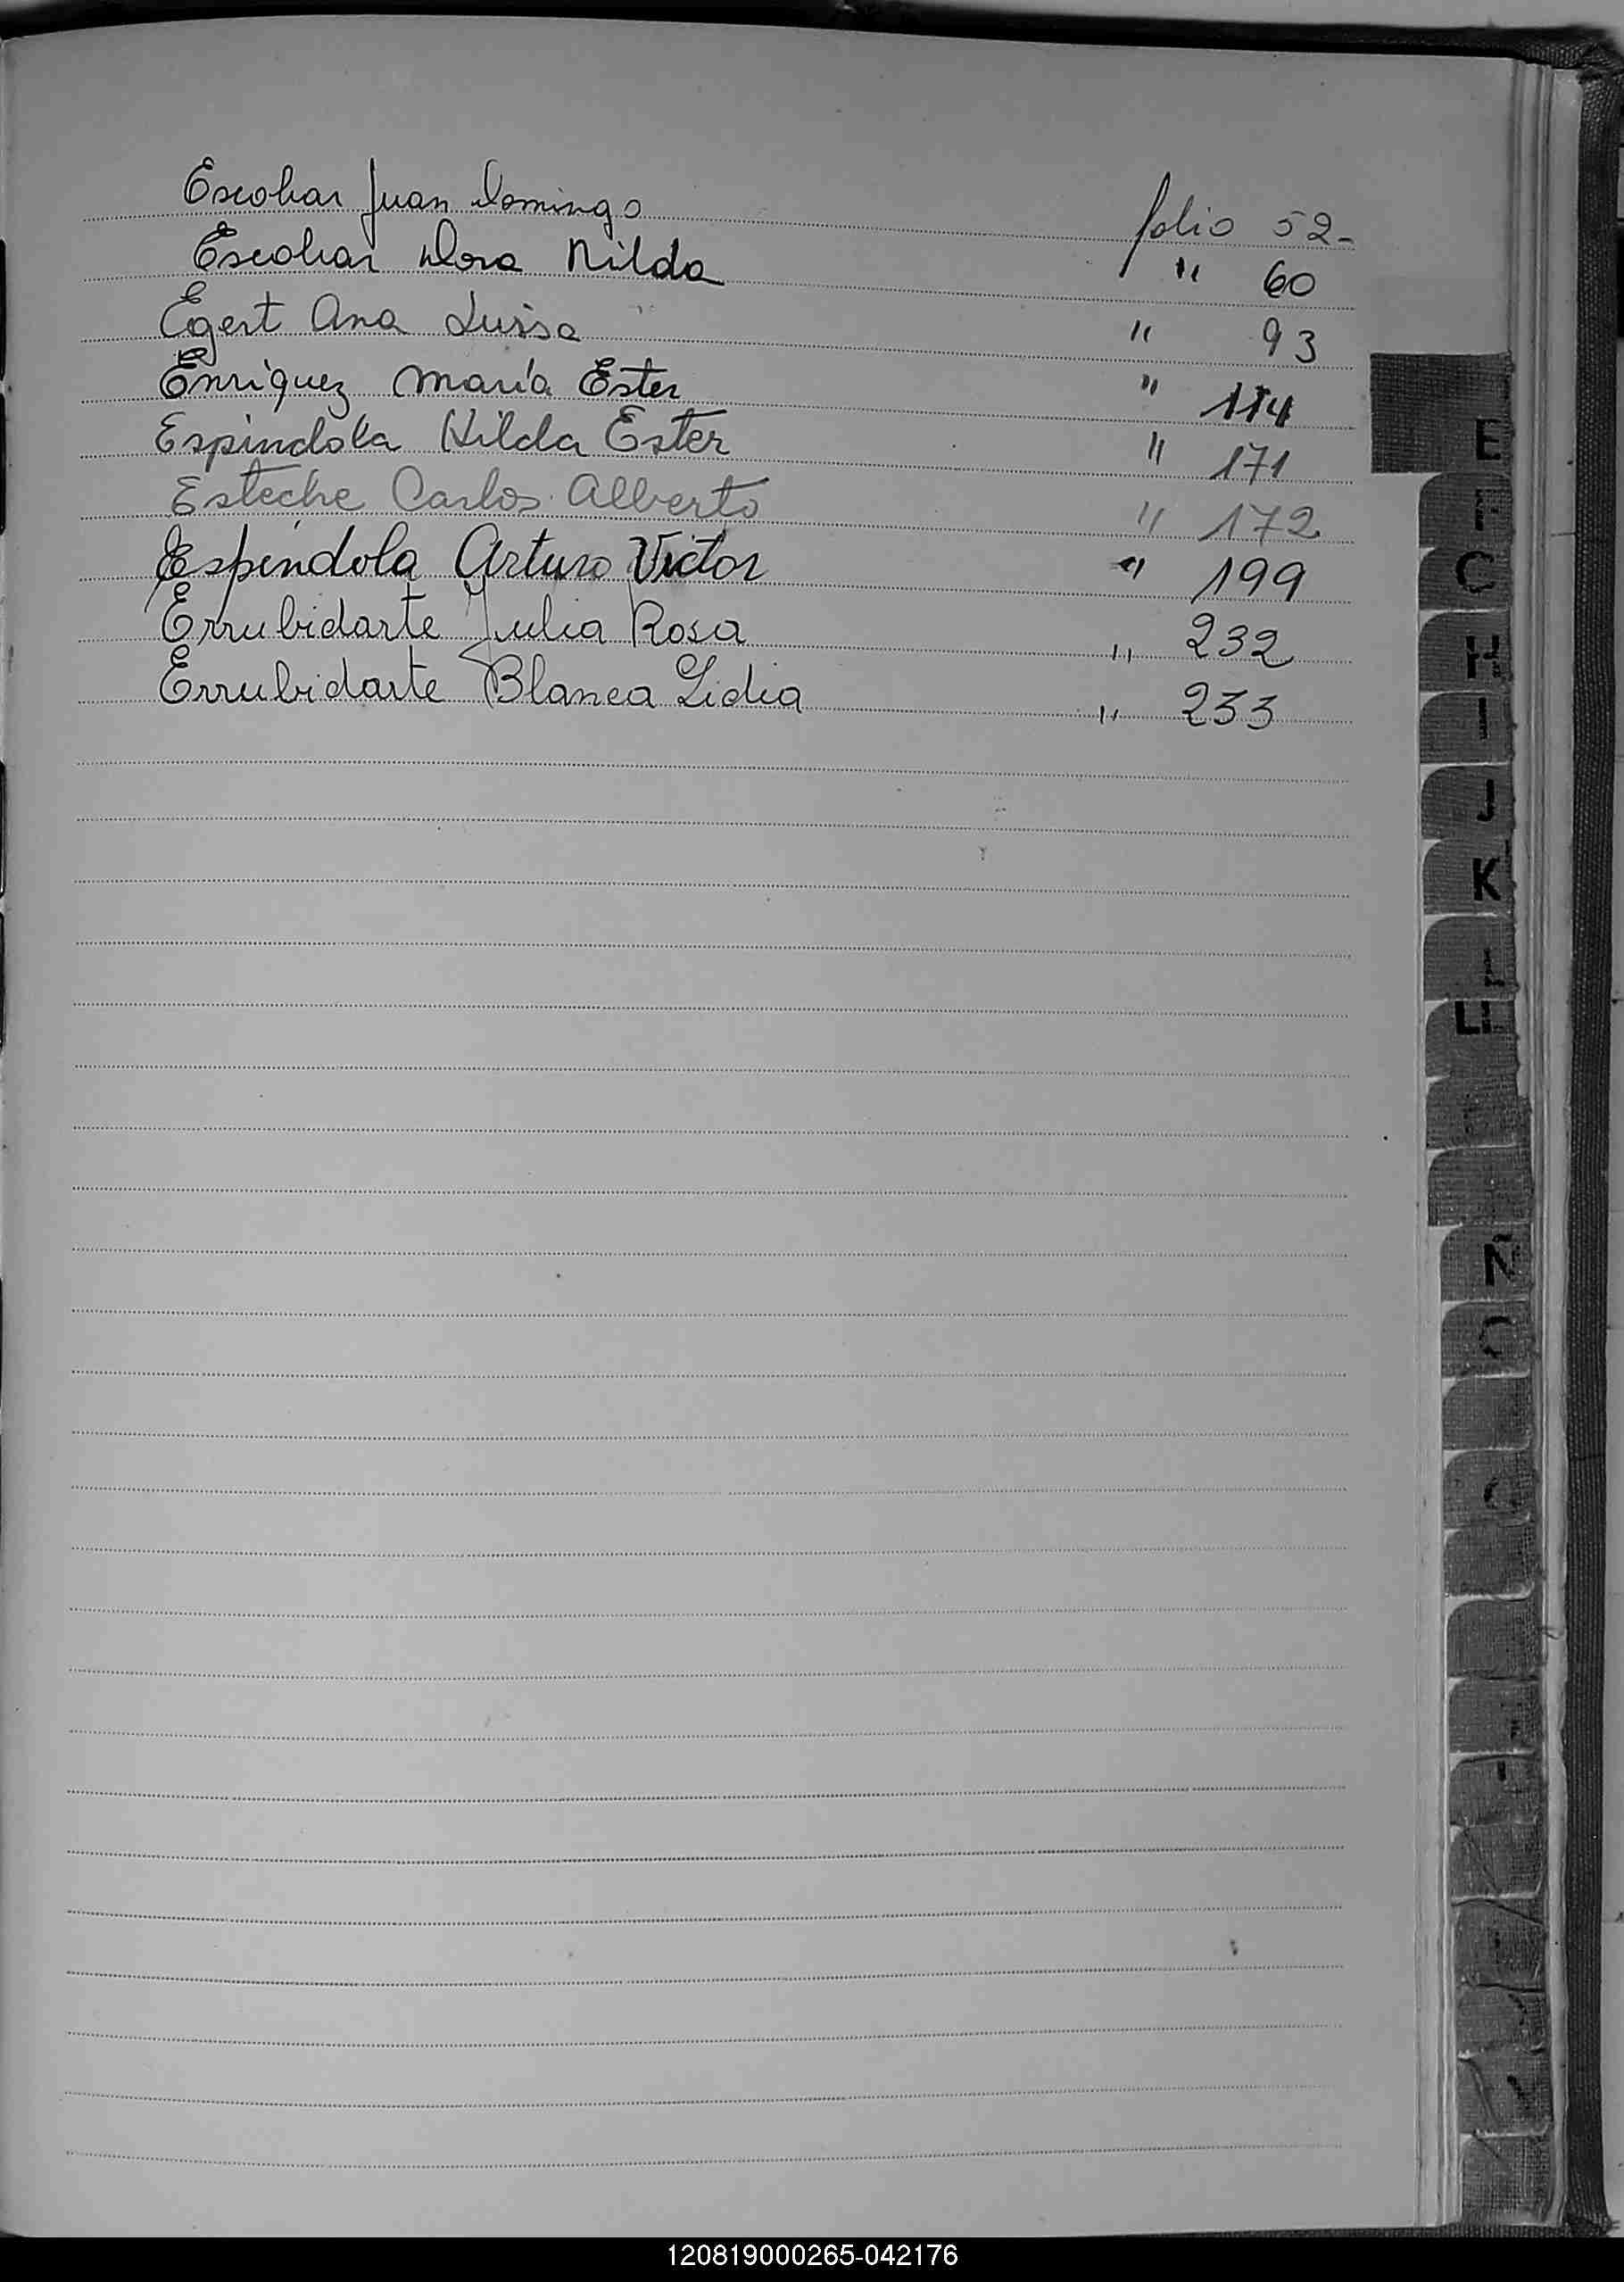 Escobar Juan Domingo folio 52-
Escobar Dora Nilda " 60
Egert Ana Luisa " 93
Enriquez María Ester " 114
Espindola Hilda Ester " 171
Esteche Carlos Alberto " 172
Espíndola Arturo Victor " 199
Errubidarte Julia Rosa " 232
Errubidarte Blanca Lidia " 233
E
J
K
Ñ
120819000265-042176